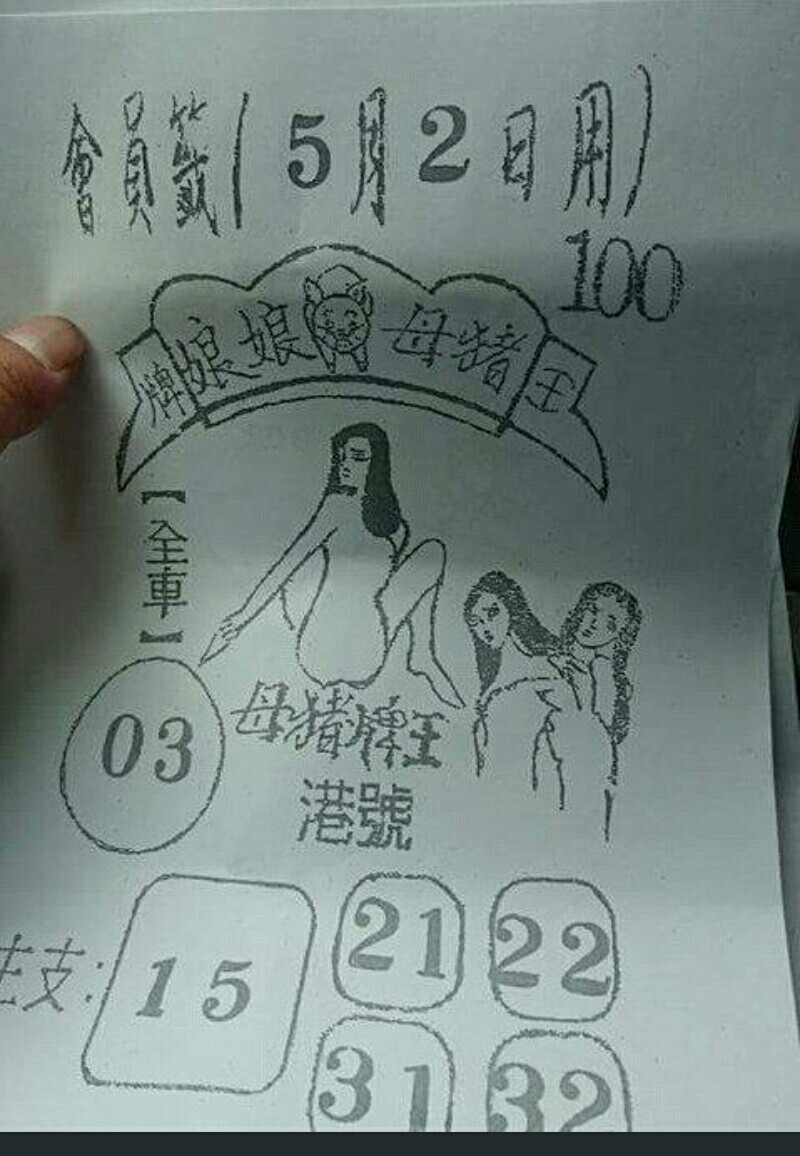 會員籤(5月2日用)
100
牌娘娘母猪王
【全車】
03
母猪牌王
港號
支:
15
21 22
31 32